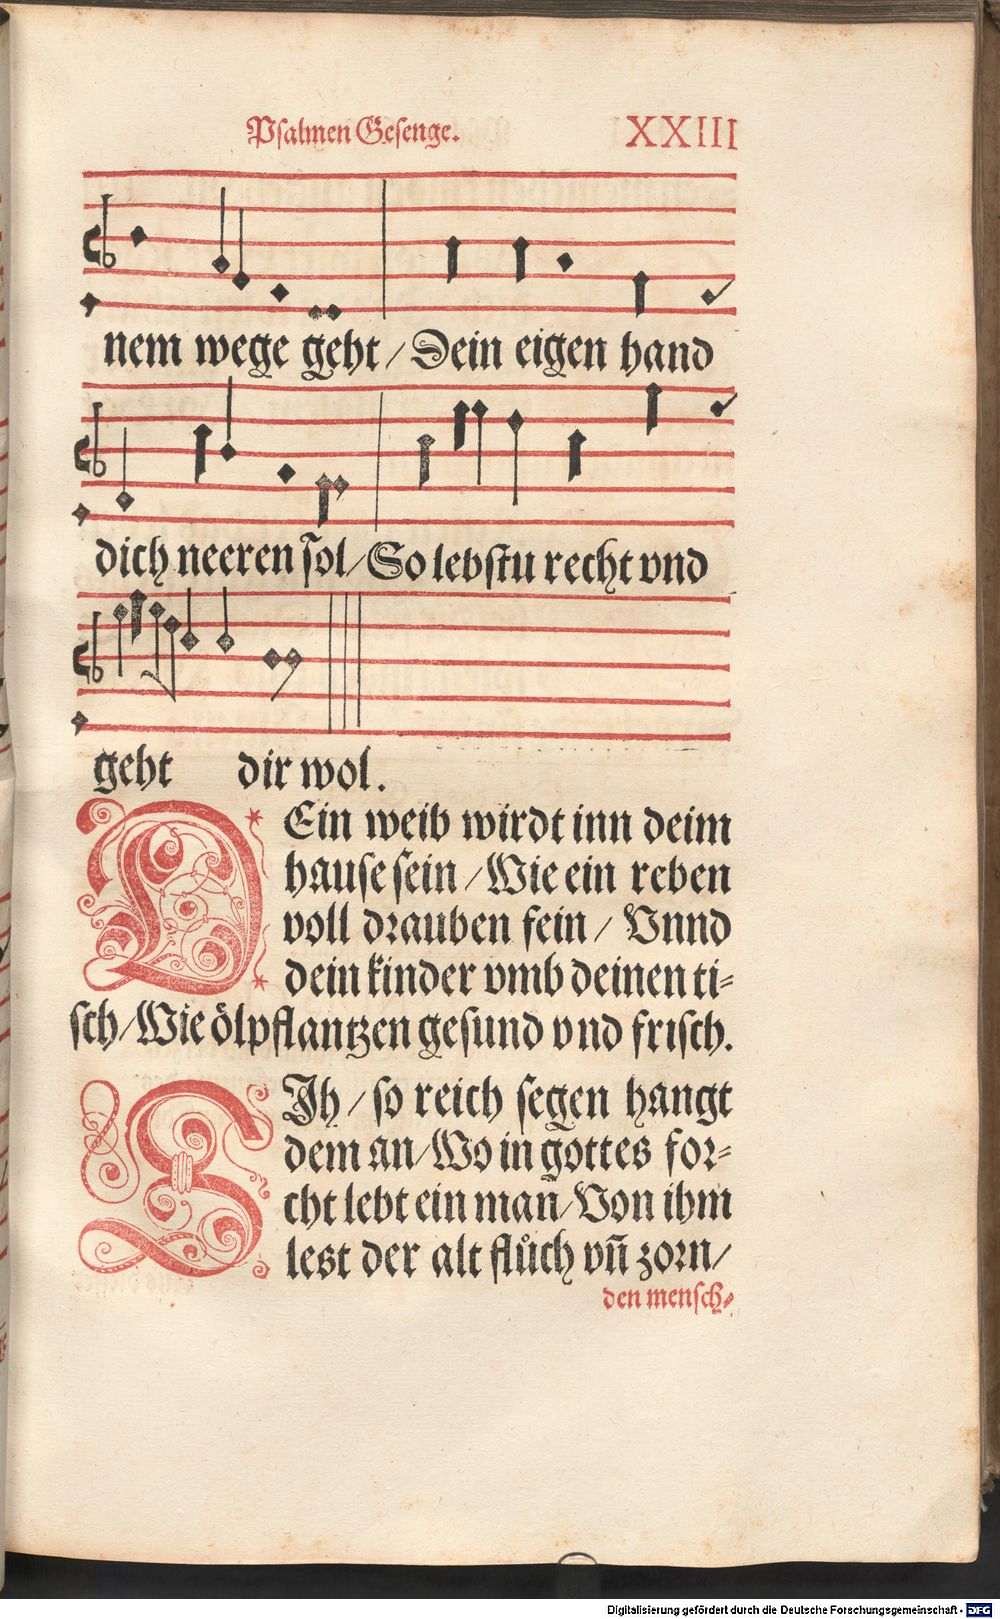 Psalmen Gesenge. XXIII
nem wege geht / Dein eigen hand
dich neeren sol / So lebstu recht vnd
geht dir wol.
DEin weib wirdt inn deim
hause sein / Wie ein reben
voll drauben fein / Vnnd
dein kinder vmb deinen ti-
sch / Wie ölpflantzen gesund vnd frisch.
SIh / so reich segen hangt
dem an / Wo in gottes for-
cht lebt ein man̄ / Von ihm
lest der alt flůch vn̄ zorn /
den mensch-
Digitalisierung gefördert durch die Deutsche Forschungsgemeinschaft - DFG